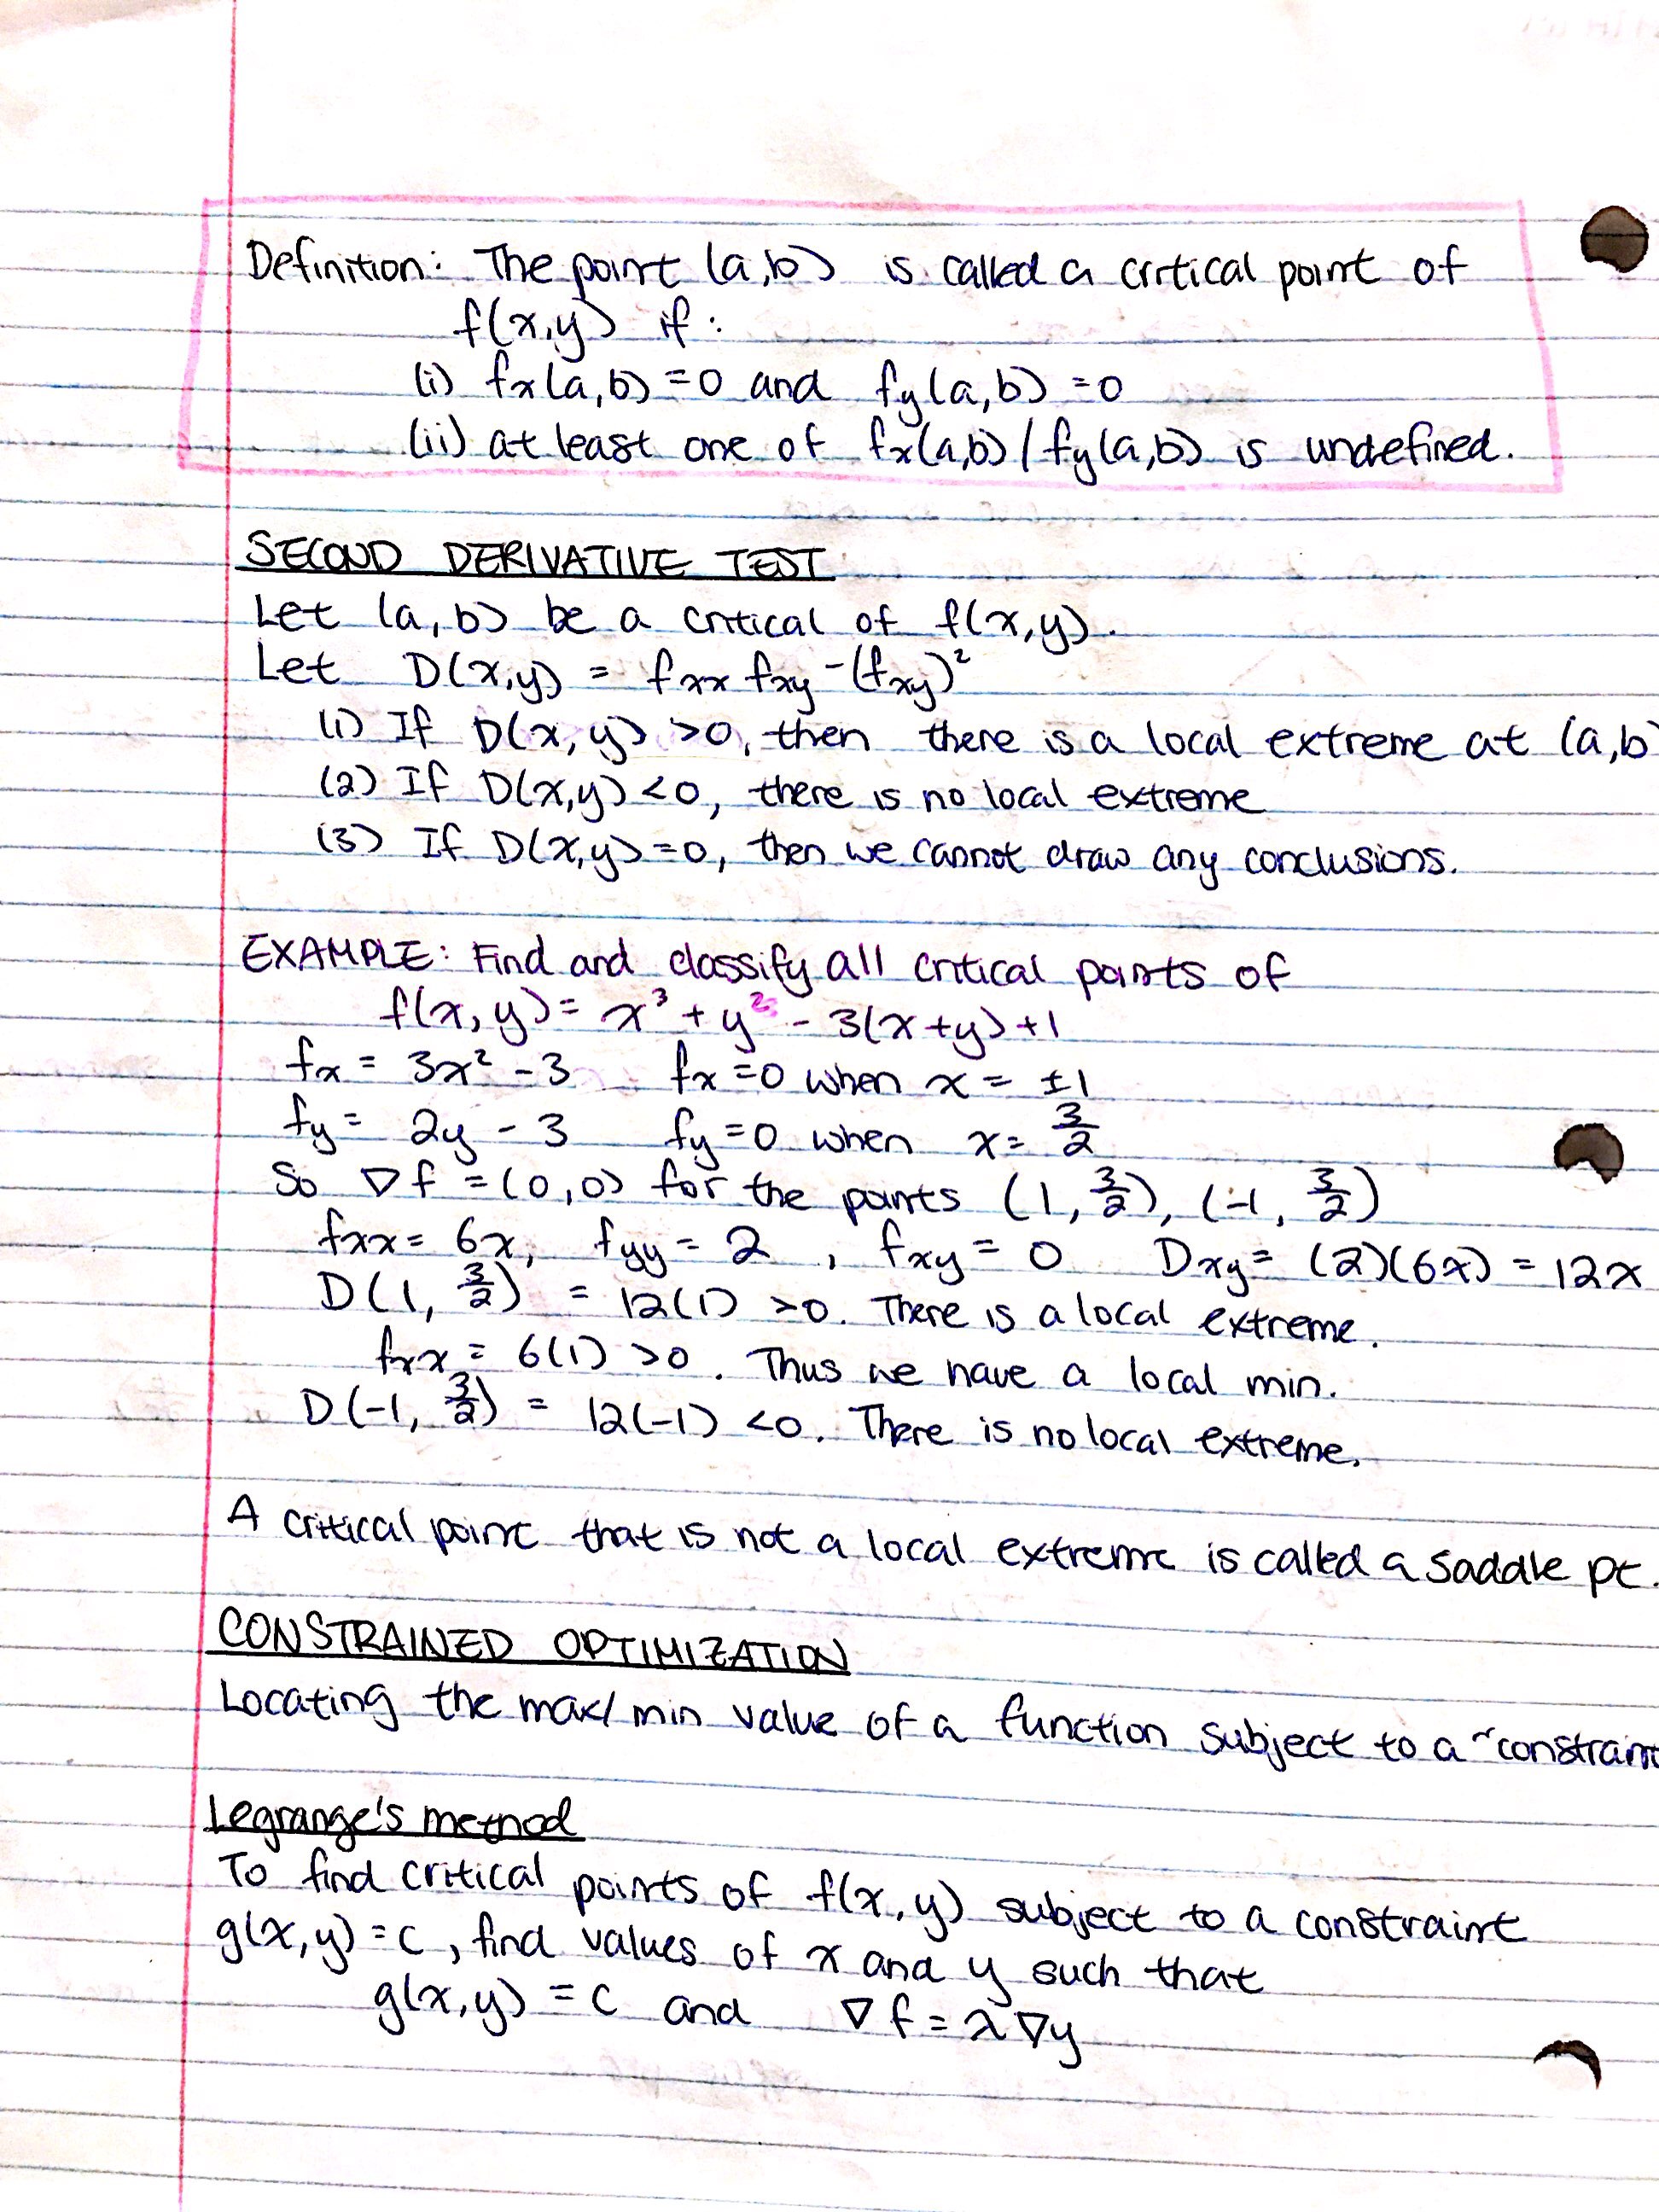 Definition: The point (a,b) is called a critical point of
f(x,y) if:
(i) fx(a,b)=0 and fy(a,b)=0
(ii) at least one of fx(a,b)/fy(a,b) is undefined.
SECOND DERIVATIVE TEST
Let (a,b) be a critical of f(x,y).
Let D(x,y) = fxx fxy -(fxy)²
(1) If D(x,y) >0, then there is a local extreme at (a,b)
(2) If D(x,y) <0, there is no local extreme
(3) If D(x,y)=0, then we cannot draw any conclusions.
EXAMPLE: Find and classify all critical points of
f(x,y)= x³ + y² - 3(x+y)+1
fx = 3x² - 3 fx=0 when x = ±1
fy = 2y - 3 fy=0 when x= 3/2
So ∇f = (0,0) for the points (1, 3/2), (-1, 3/2)
fxx= 6x, fyy= 2, fxy= 0 Dxy= (2)(6x) = 12x
D(1, 3/2) = 12(1) >0. There is a local extreme.
fxx = 6(1) >0. Thus we have a local min.
D(-1, 3/2) = 12(-1) <0. There is no local extreme.
A critical point that is not a local extreme is called a saddle pt.
CONSTRAINED OPTIMIZATION
Locating the max/min value of a function subject to a "constraint
Legrange's method
To find critical points of f(x,y) subject to a constraint
g(x,y)=c, find values of x and y such that
g(x,y) = c and ∇f = λ∇y